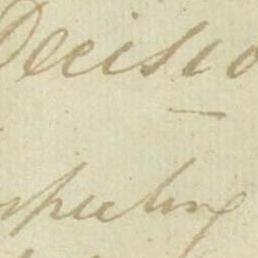 Decisio
specting